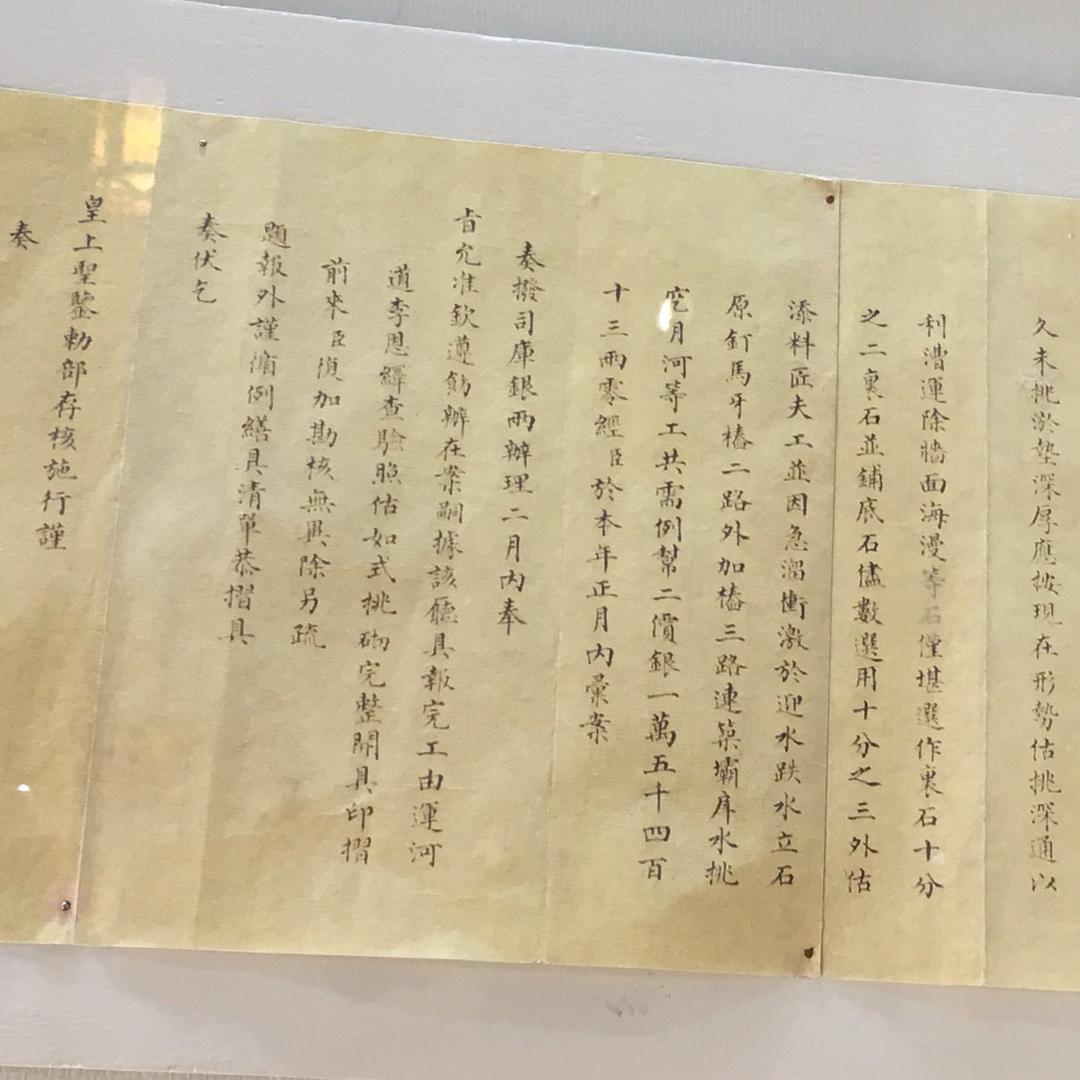 久未挑淤墊深厚應按現在形勢估挑深通以
利漕運除牆面海漫等石僅堪選作裏石十分
之二裏石並鋪底石儘數選用十分之三外估
添料匠夫工並因急溜衝激於迎水跌水立石
原釘馬牙樁二路外加樁三路連築壩戽水挑
挖月河等工共需例幫二價銀一萬五千四百
十三兩零經臣於本年正月內彙案
奏撥司庫銀兩辦理二月內奉
旨允准欽遵飭辦在案嗣據該廳具報完工由運河
道李恩繹查驗照估如式挑砌完整開具印摺
前來臣復加勘核無異除另疏
題報外謹循例繕具清單恭摺具
奏伏乞
皇上聖鑒勅部存核施行謹
奏